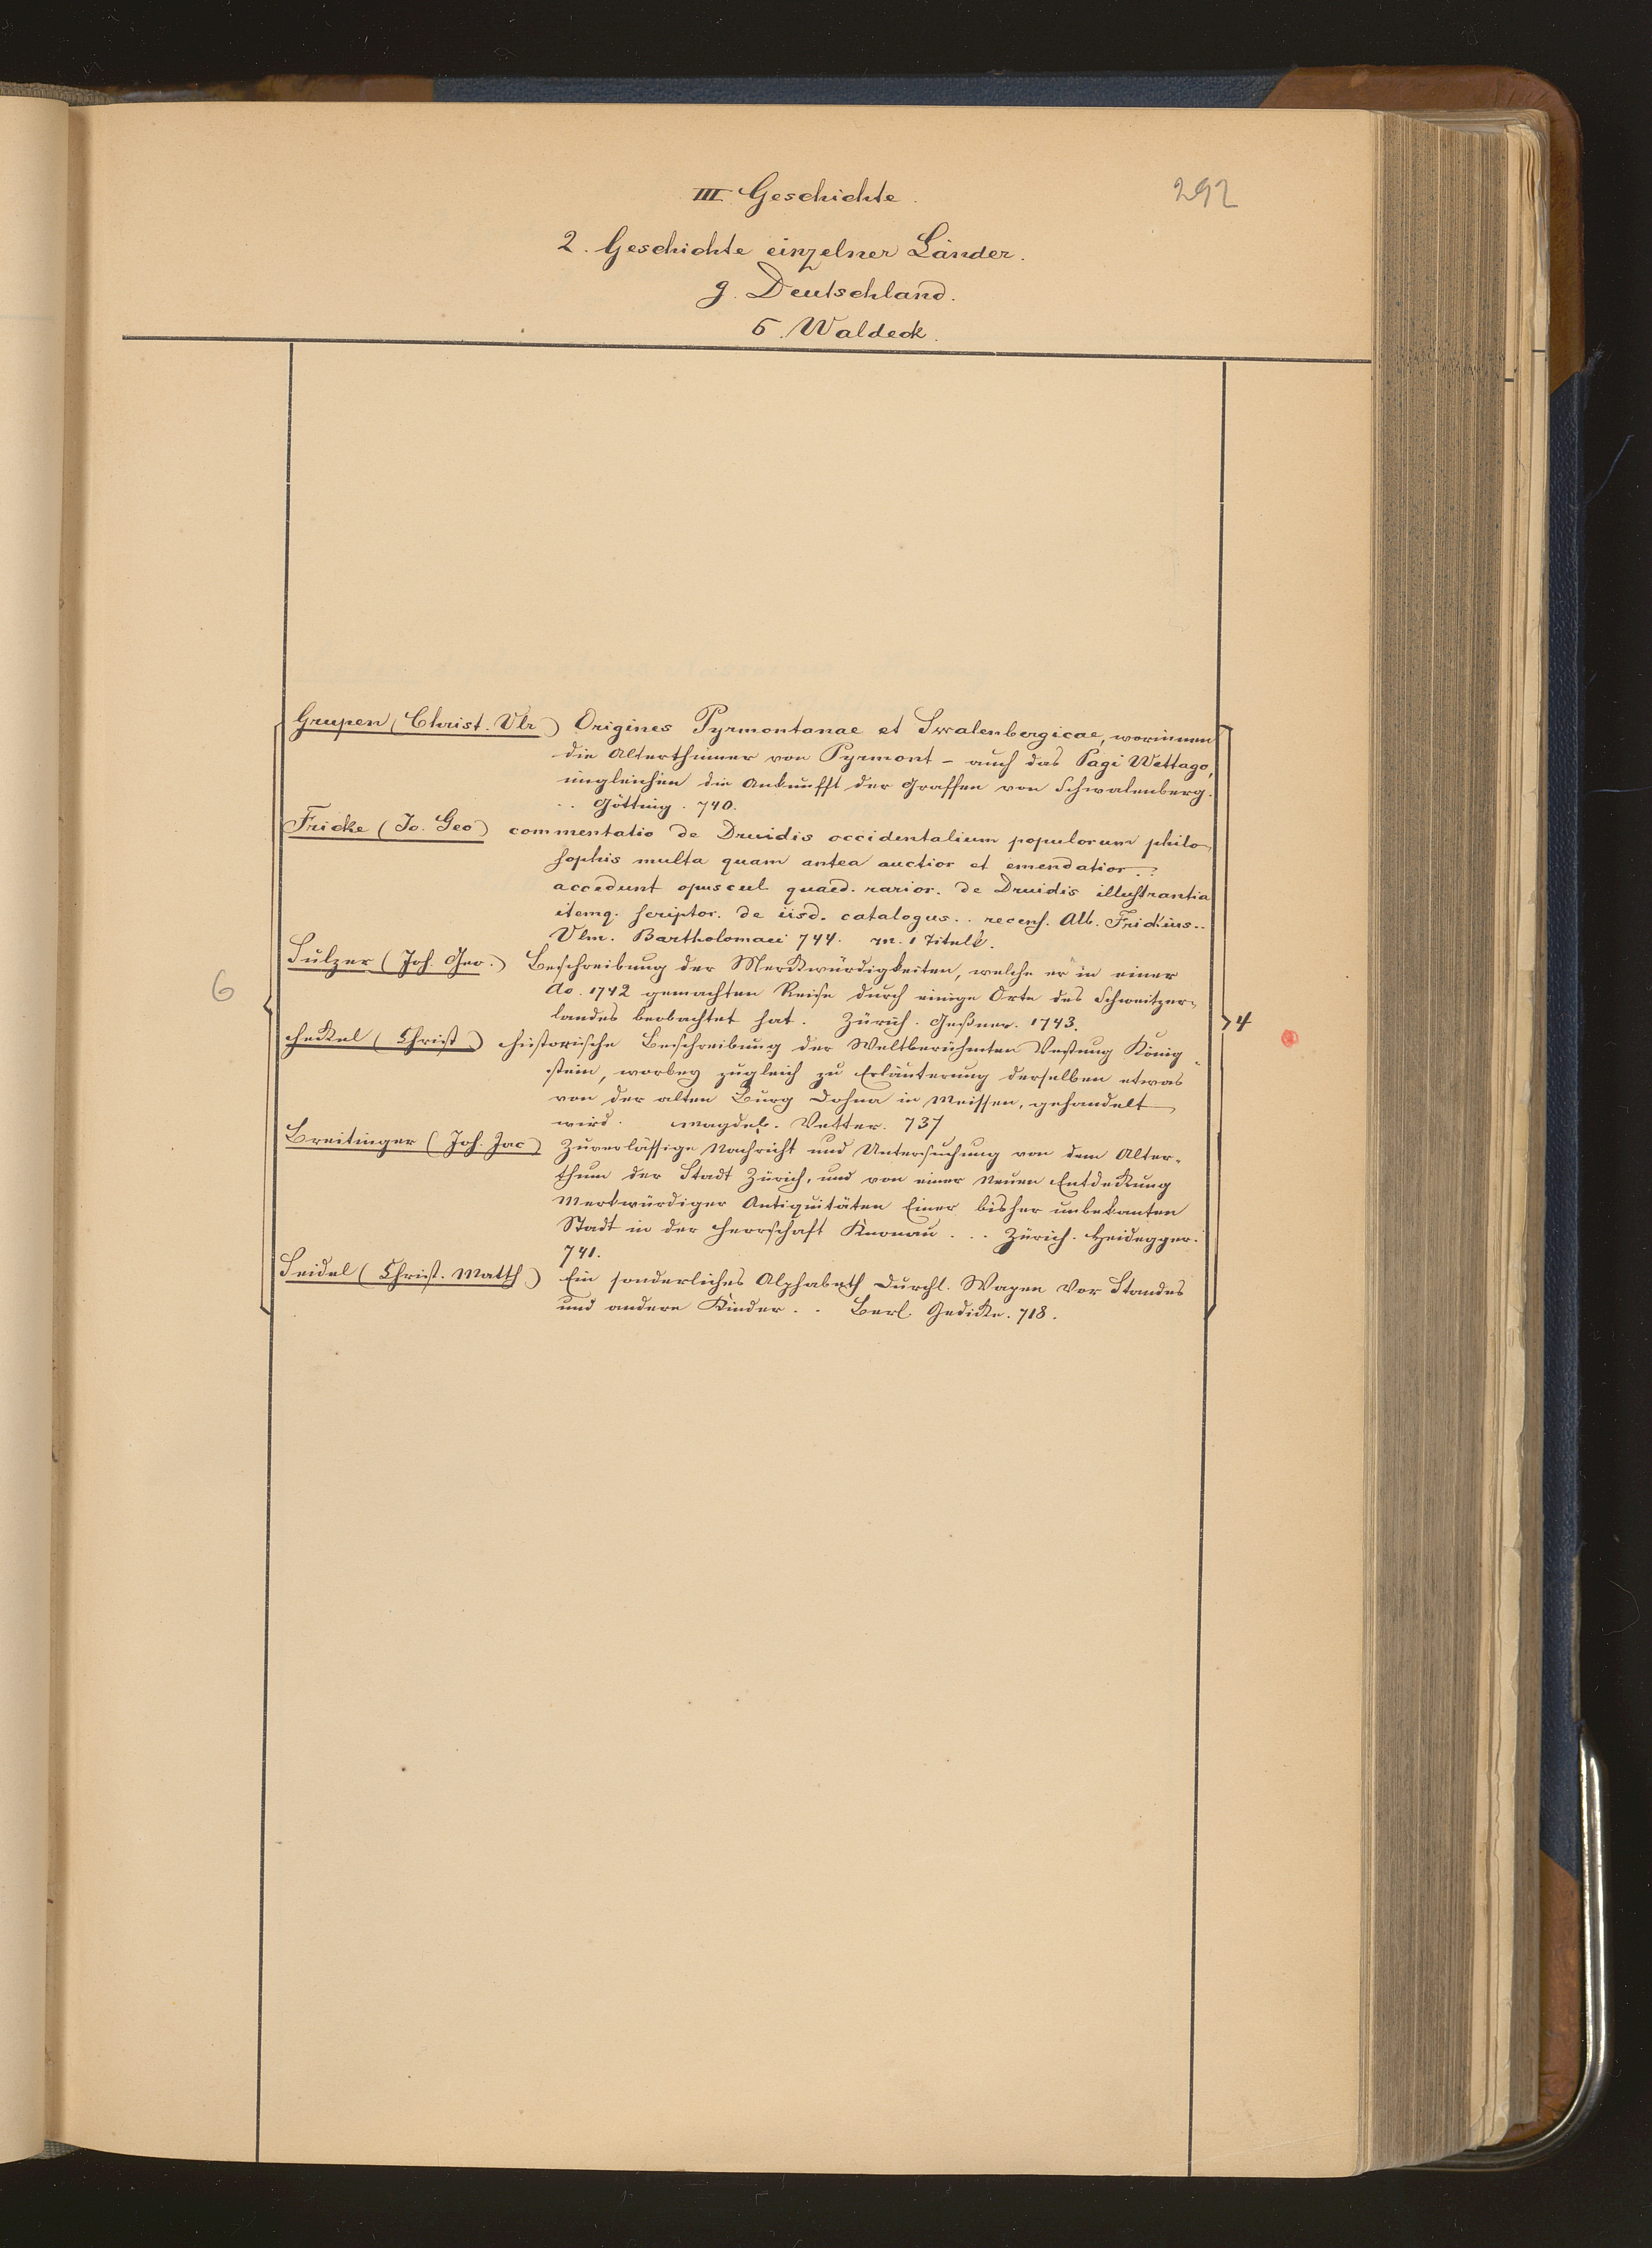 292
III. Geschichte.
2. Geschichte einzelner Länder.
g. Deutschland.
6. Waldeck.
Grupen (Christ. Ulr.) Origines Pyrmontanae et Swalenbergicae, worinnen
die Alterthümer von Pyrmont - auch das Pagi Wettago,
ungleichen die Ankunfft der Graffen von Schwalenberg.
.. Götting. 740.
Fricke (Jo. Geo) commentatio de Druidis occidentalium populorum philo
sophis multa quam antea auctior et emendatior..
accedunt opuscul. quaed. rarior. de Druidis illustrantia
itemq. scriptor. de iisd. catalogus.. recens. Alb. Frickius..
Ulm. Bartholomaei 744. m. 1 Titulk.
Sulzer (Joh. Geo.) Beschreibung der Merckwürdigkeiten, welche er in einer
Ao. 1742 gemachten Reise durch einige Orte des Schweitzer-
landes beobachtet hat. Zürich. Geßner. 1743.
6
4
Heckel (Christ.) Historische Beschreibung der Weltberühmten Vestung König
stein, worbey zugleich zu Erläuterung derselben etwas
von der alten Burg Dohna in Meissen, gehandelt
wird. Magdeb. Vetter. 737
Breitinger (Joh. Jac) Zuverlässige Nachricht und Untersuchung von dem Alter-
thum der Stadt Zürich, und von einer Neuen Entdeckung
Merkwürdiger Antiquitäten Einer bisher unbekanten
Stadt in der Herrschaft Knonau... Zürich. Heidegger.
741.
Seidel (Christ. Matth.) Ein sonderliches Alphabeth Durchl. Wapen Vor Standes
und andere Kinder.. Berl. Gedicke. 718.